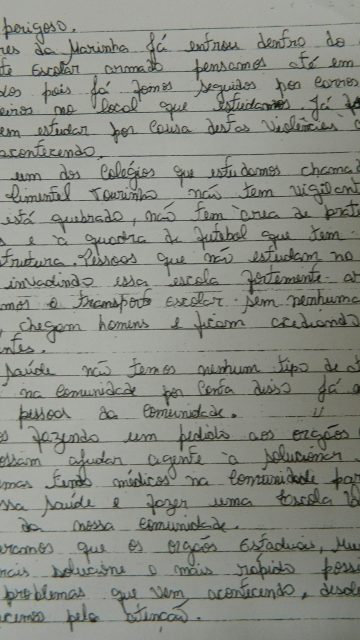 perigoso.
res da Marinha já entrou dentro do
te escolar armado pensamos até em
dos pais já fomos seguidos por carros
eiros no local que estudamos. Já
em estudar por causa destas violências
acontecendo.
um dos Colégios que estudamos chama
limentel Tourinho não tem vigilant
está quebrado, não tem área de prate
s e à quadra de futebol que tem
trutura. Pessoas que não estudam no
invadindo essa escola fortemente ar
mos o transporte escolar sem nenhuma
, chegam homens e ficam acediando
ntes.
saúde não temos nenhum tipo de at
na comunidade por conta disso já a
pessoas da comunidade.
s fazendo um pedido aos orgãos
ossam ajudar agente à solucionar
mas tendo médicos na comunidade par
ssa saúde e fazer uma Escola
da nossa comunidade.
ramos que os orgãos Estaduais, Mu
nais solucione o mais rápido poss
problemas que vem acontecendo, desde
cemos pela atenção.